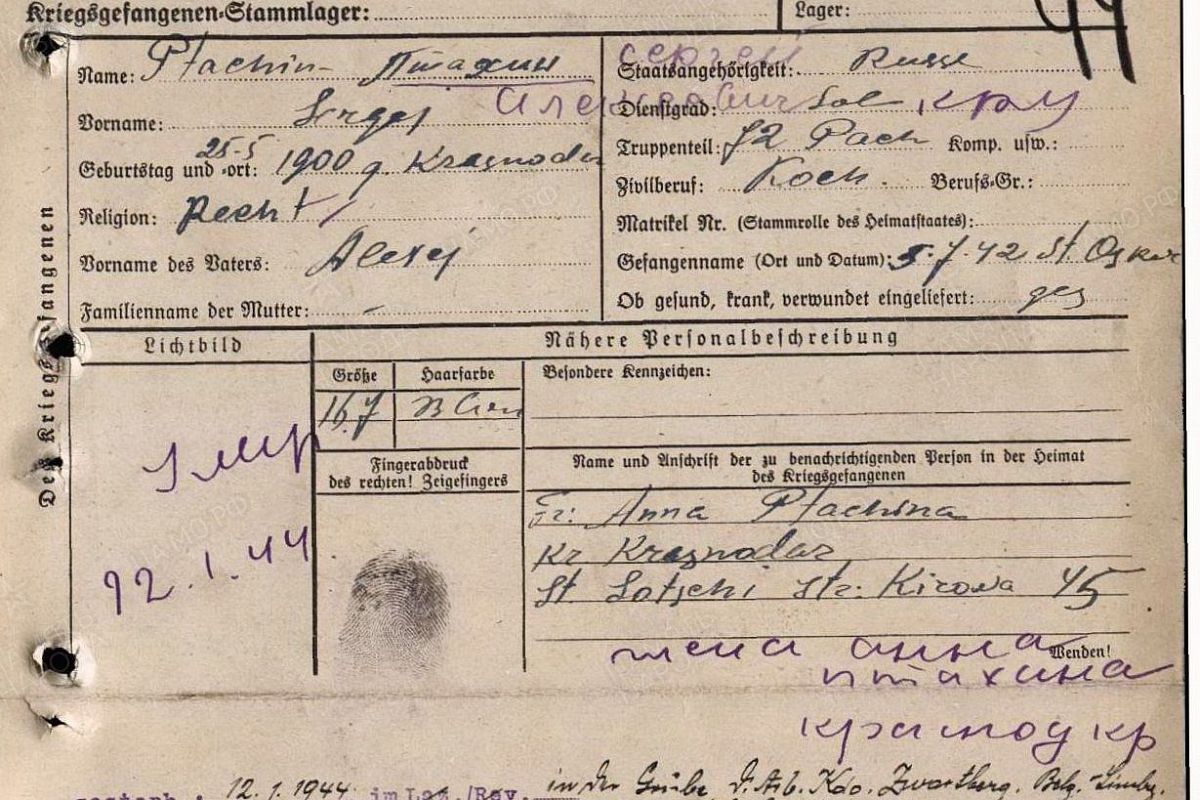 Kriegsgefangenen-Stammlager: Lager:
44
Name: Ptachin - Птахин
Сергей
Staatsangehörigkeit: Russe
Алексеевич
Vorname: Sergej
Dienstgrad: Sol кр
25-5
Geburtstag und -ort: 1900 g Krasnodar
Truppenteil: 72 Komp. usw.:
Zivilberuf: Koch. Berufs-Gr.:
Religion: Recht
Matrikel Nr. (Stammrolle des Heimatstaates):
Vorname des Vaters: Alexej
Gefangenname (Ort und Datum): 5.7.42 St. Oskol
Familienname der Mutter: -
Ob gesund, krank, verwundet eingeliefert: ges
Des Kriegsgefangenen
Lichtbild
Nähere Personalbeschreibung
Größe Haarfarbe
Besondere Kennzeichen:
167
Fingerabdruck
des rechten! Zeigefingers
Name und Anschrift der zu benachrichtigenden Person in der Heimat
des Kriegsgefangenen
Fr: Anna Ptachina
Kr Krasnodar
St Sotschi Str: Kirowa 45
умер
12.1.44
Wenden!
жена анна
птахина
кр
12.1.1944 im Laz./Rev. in der Grube d. Arb. Kdo. Zwartberg, Belg.-Limbg.